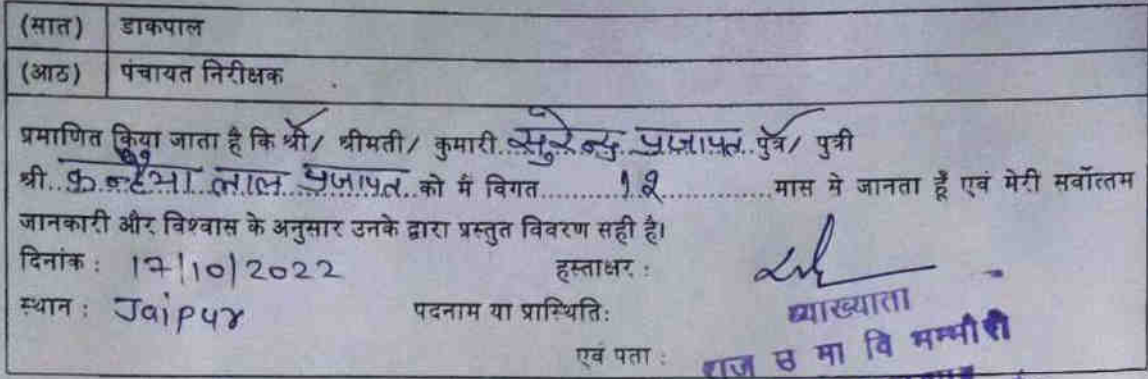 (सात) डाकपाल
(आठ) पंचायत निरीक्षक
प्रमाणित किया जाता है कि श्री/ श्रीमती/ कुमारी..सुरेन्द्र प्रजापत..पुत्र/ पुत्री
श्री..कन्हैया लाल प्रजापत..को मैं विगत..........12..............मास मे जानता हूँ एवं मेरी सर्वोत्तम
जानकारी और विश्वास के अनुसार उनके द्वारा प्रस्तुत विवरण सही है।
दिनांक : 17/10/2022 हस्ताक्षर :
स्थान : Jaipur पदनाम या प्रास्थिति: व्याख्याता
एवं पता : राज उ मा वि भम्भौरी